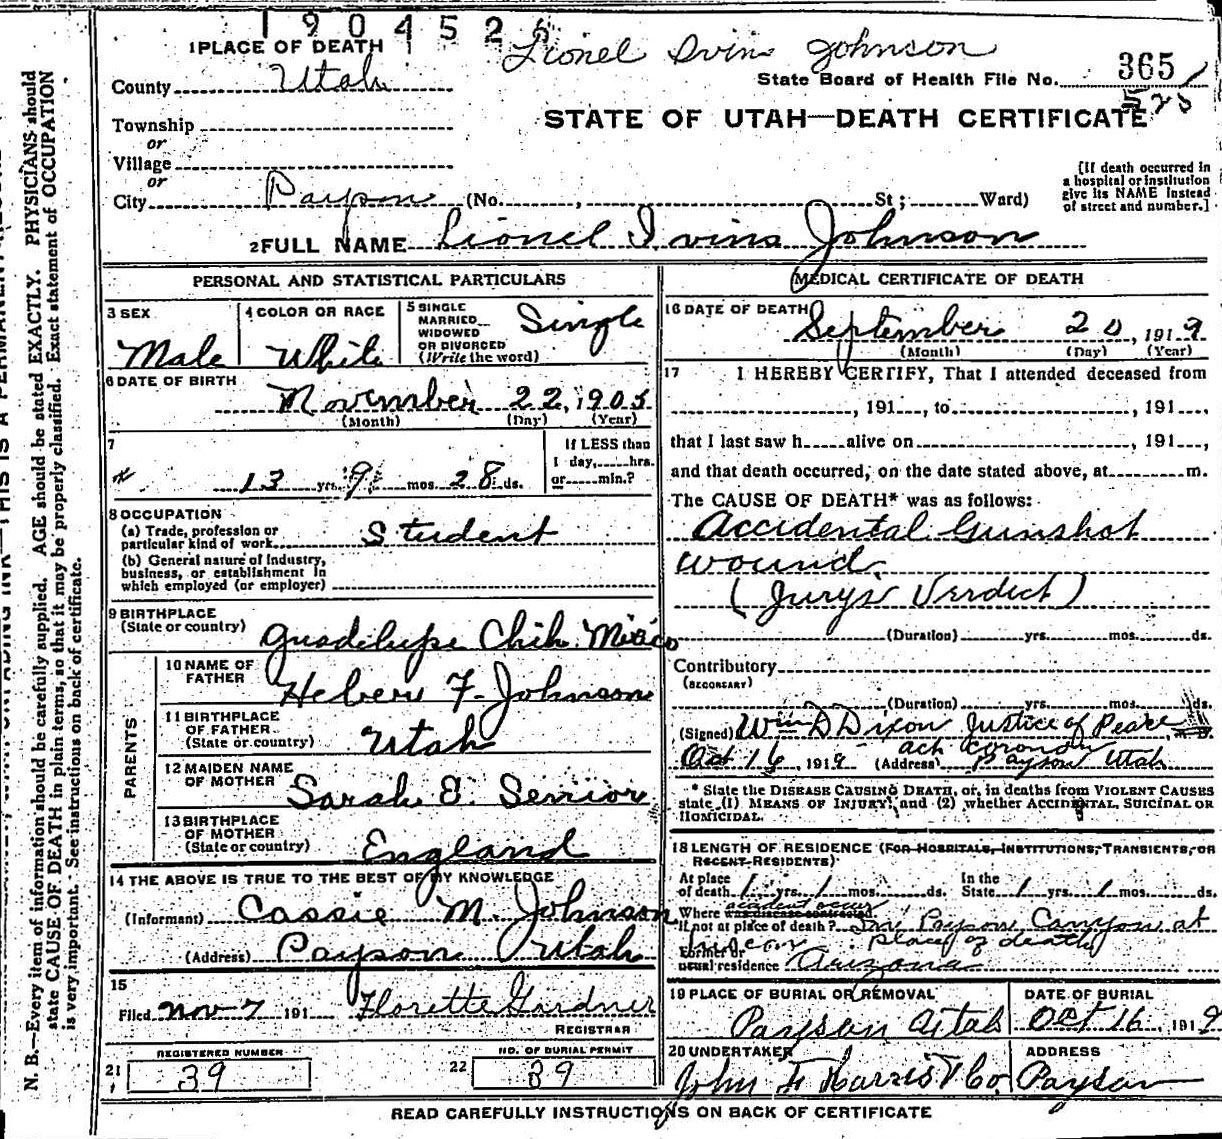 190452
Lionel Ivins Johnson
1 PLACE OF DEATH
County Utah
State Board of Health File No. 365
525
Township
or
Village
or
City Payson (No. , St; Ward)
STATE OF UTAH—DEATH CERTIFICATE
[If death occurred in
a hospital or institution
give its NAME instead
of street and number.]
2 FULL NAME Lionel Ivins Johnson
PERSONAL AND STATISTICAL PARTICULARS
3 SEX
Male
4 COLOR OR RACE
White
5 SINGLE
MARRIED
WIDOWED
OR DIVORCED
(Write the word)
Single
6 DATE OF BIRTH
November 22, 1905
(Month) (Day) (Year)
7
13 yrs. 9 mos. 28 ds.
If LESS than
1 day, hrs.
or min.?
8 OCCUPATION
(a) Trade, profession or
particular kind of work Student
(b) General nature of industry,
business, or establishment in
which employed (or employer)
9 BIRTHPLACE
(State or country) Guadelupe Chih. Mexico
PARENTS
10 NAME OF
FATHER Heber F. Johnson
11 BIRTHPLACE
OF FATHER
(State or country) Utah
12 MAIDEN NAME
OF MOTHER Sarah E. Senior
13 BIRTHPLACE
OF MOTHER
(State or country) England
14 THE ABOVE IS TRUE TO THE BEST OF MY KNOWLEDGE
(Informant) Cassie M. Johnson
(Address) Payson Utah
15
Filed Nov 7 191 Florette Gardner
REGISTRAR
REGISTERED NUMBER
21 39
NO. OF BURIAL PERMIT
22 39
MEDICAL CERTIFICATE OF DEATH
16 DATE OF DEATH
September 20, 1919
(Month) (Day) (Year)
17 I HEREBY CERTIFY, That I attended deceased from
, 191 , to , 191 ,
that I last saw h alive on , 191 ,
and that death occurred, on the date stated above, at m.
The CAUSE OF DEATH* was as follows:
Accidental Gunshot
wound
(Jurys Verdict)
(Duration) yrs. mos. ds.
Contributory
(SECONDARY)
(Duration) yrs. mos. ds.
(Signed) Wm D Dixon Justice of Peace
act coroner
Oct 16, 1919 (Address) Payson Utah
* State the DISEASE CAUSING DEATH, or, in deaths from VIOLENT CAUSES
state (1) MEANS OF INJURY; and (2) whether ACCIDENTAL, SUICIDAL OR
HOMICIDAL.
18 LENGTH OF RESIDENCE (FOR HOSPITALS, INSTITUTIONS, TRANSIENTS, OR
RECENT RESIDENTS)
At place
of death 1 yrs. 1 mos. ds.
In the
State 1 yrs. 1 mos. ds.
accident occur
Where was disease contracted,
if not at place of death? In Payson Canyon at
place of death
Former or
usual residence Arizona
19 PLACE OF BURIAL OR REMOVAL
Payson Utah
DATE OF BURIAL
Oct 16, 1919
20 UNDERTAKER
John F Harris & Co.
ADDRESS
Payson
READ CAREFULLY INSTRUCTIONS ON BACK OF CERTIFICATE
N. B.—Every item of information should be carefully supplied. AGE should be stated EXACTLY. PHYSICIANS should
state CAUSE OF DEATH in plain terms, so that it may be properly classified. Exact statement of OCCUPATION
is very important. See instructions on back of certificate.